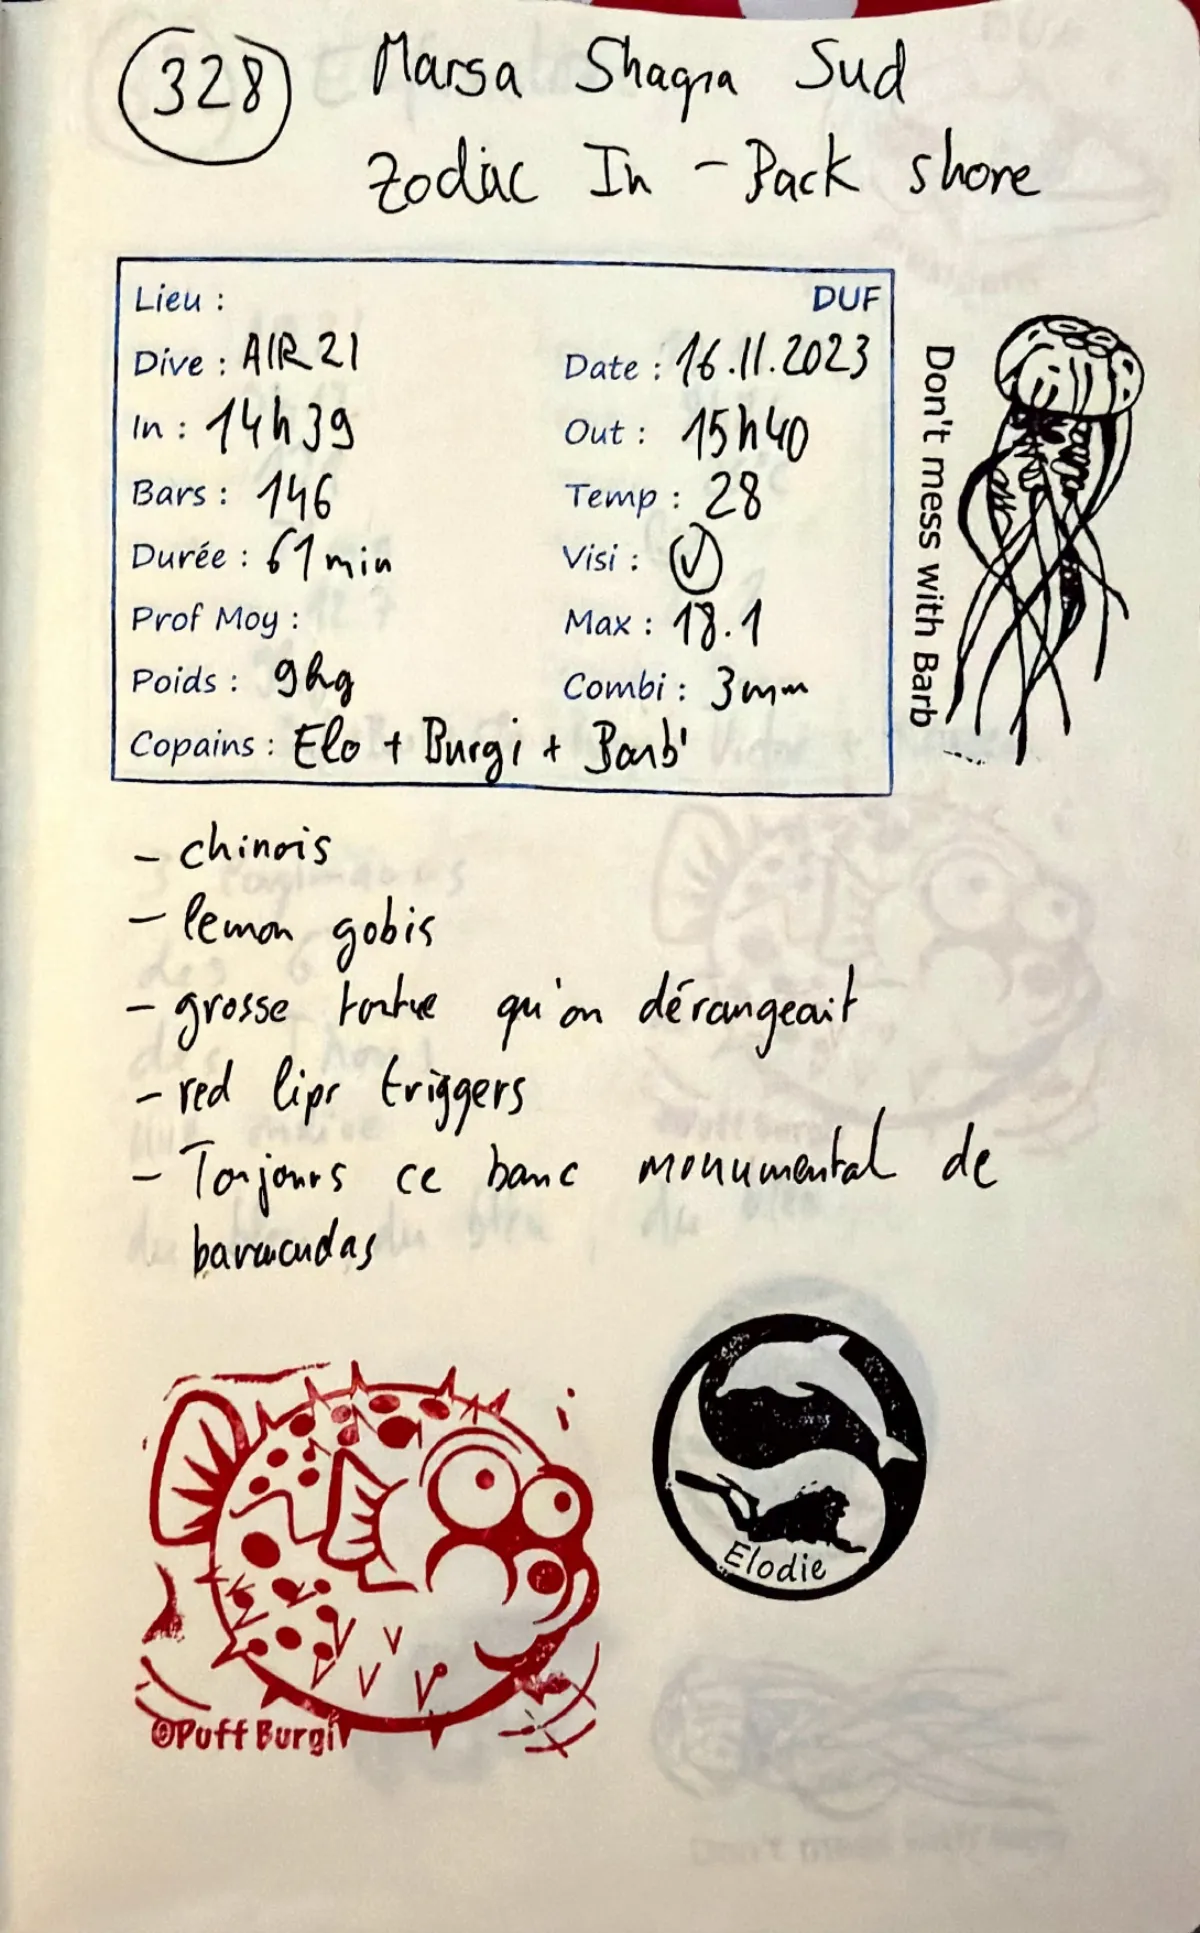 328 Marsa Shagra Sud
Zodiac In - Back shore
Lieu : DUF
Dive : AIR 21 Date : 16.11.2023
In : 14h39 Out : 15h40
Bars : 146 Temp : 28
Durée : 61 min Visi : ✓
Prof Moy : Max : 18.1
Poids : 9kg Combi : 3mm
Copains : Elo + Burgi + Barb'
Don't mess with Barb
- chinois
- lemon gobis
- grosse tortue qu'on dérangeait
- red lips triggers
- Toujours ce banc monumental de
baracudas
©Puff Burgi
Elodie